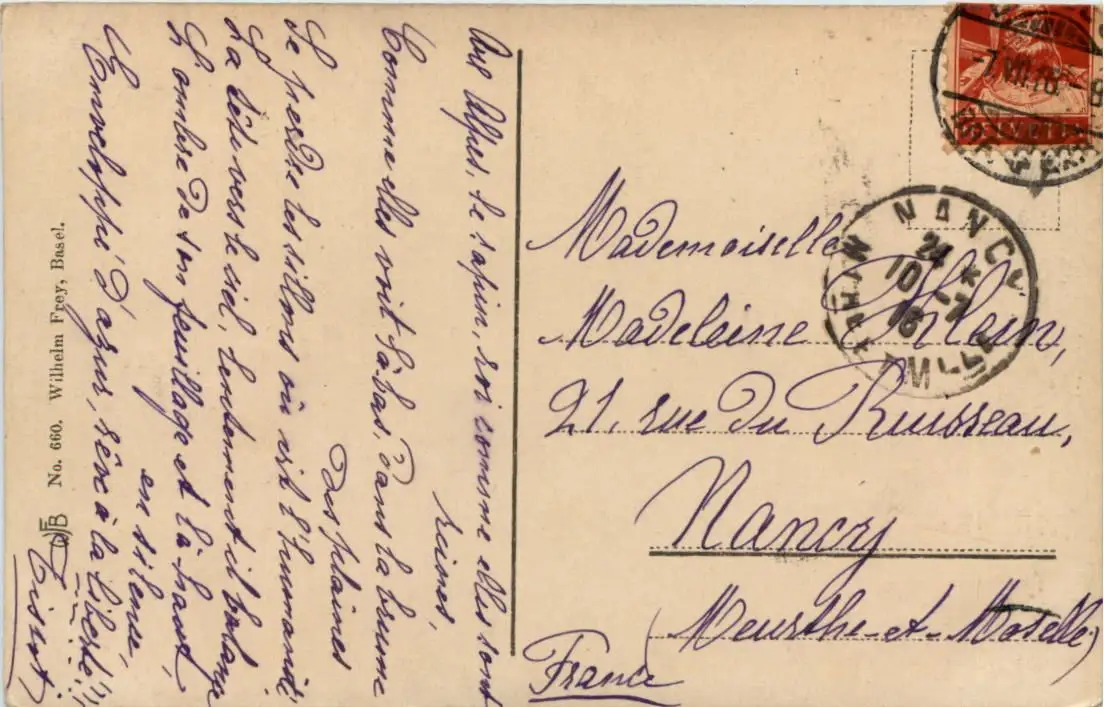 Aux Alpes, le sapin, roi comme elles sont
reines,
Comme elles voit là-bas, dans la brume
des plaines
Se perdre les sillons où vit l'humanité
La tête vers le ciel, lentement il balance
L'ombre de son feuillage et là-haut,
en silence,
Enveloppé d'azur, rêve à la liberté!!
Tissot.
No. 660. Wilhelm Frey, Basel.
WFB
-7.VII.16.-
HELVETIA
NANCY
24
10 -7
16
Mademoiselle
Madeleine
21, rue du Ruisseau,
Nancy
(Meurthe-et-Moselle)
France